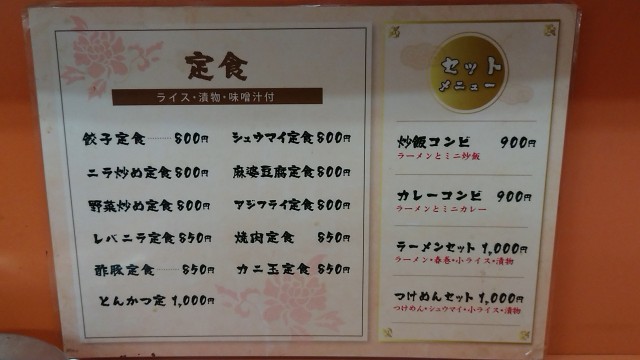 定食
ライス・漬物・味噌汁付
餃子定食 800円
ニラ炒め定食 800円
野菜炒め定食 800円
レバニラ定食 850円
酢豚定食 850円
とんかつ定 1,000円
シュウマイ定食 800円
麻婆豆腐定食 800円
アジフライ定食 800円
焼肉定食 850円
カニ玉定食 850円
セット
メニュー
炒飯コンビ 900円
ラーメンとミニ炒飯
カレーコンビ 900円
ラーメンとミニカレー
ラーメンセット 1,000円
ラーメン・春巻・小ライス・漬物
つけめんセット 1,000円
つけめん・シュウマイ・小ライス・漬物